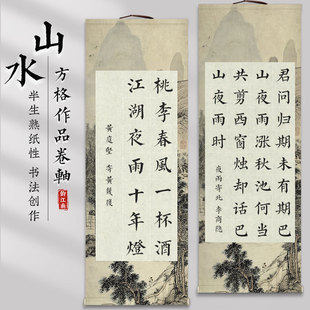 山水
方格作品卷軸
半生熟纸性 书法创作
桃李春風一杯酒
江湖夜雨十年燈
黃庭堅 寄黃幾復
君问归期未有期巴
山夜雨涨秋池何当
共剪西窗烛却话巴
山夜雨时
夜雨寄北 李商隐